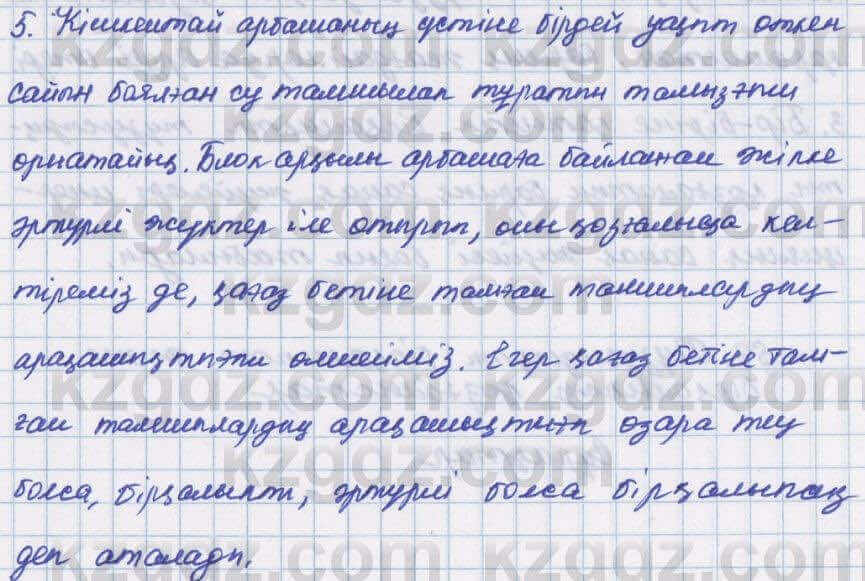 5. Кішкентай арбашаның үстіне бірдей уақыт өткен
сайын боялған су тамшылап тұратын тамызғыш
орнатайық. Блок арқылы арбашаға байланған жіпке
әртүрлі жүктер іле отырып, оны қозғалысқа кел-
тіреміз де, қағаз бетіне тамған тамшылардың
арақашықтығын өлшейміз. Егер қағаз бетіне там-
ған тамшылардың арақашықтығы өзара тең
болса, бірқалыпты, әртүрлі болса бірқалыпсыз
деп аталады.
kzgdz.com